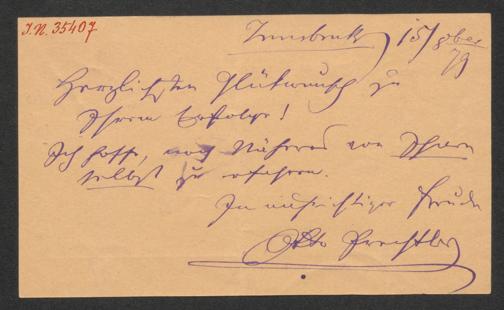 J.N. 35407
Innsbruck 15/8ber
79
Herzlichsten Glükwunsch zu
Ihrem Erfolge!
Ich hoffe, noch Näheres von Ihnen
selbst zu erfahren.
In aufrichtiger Freude
Otto Prechtler